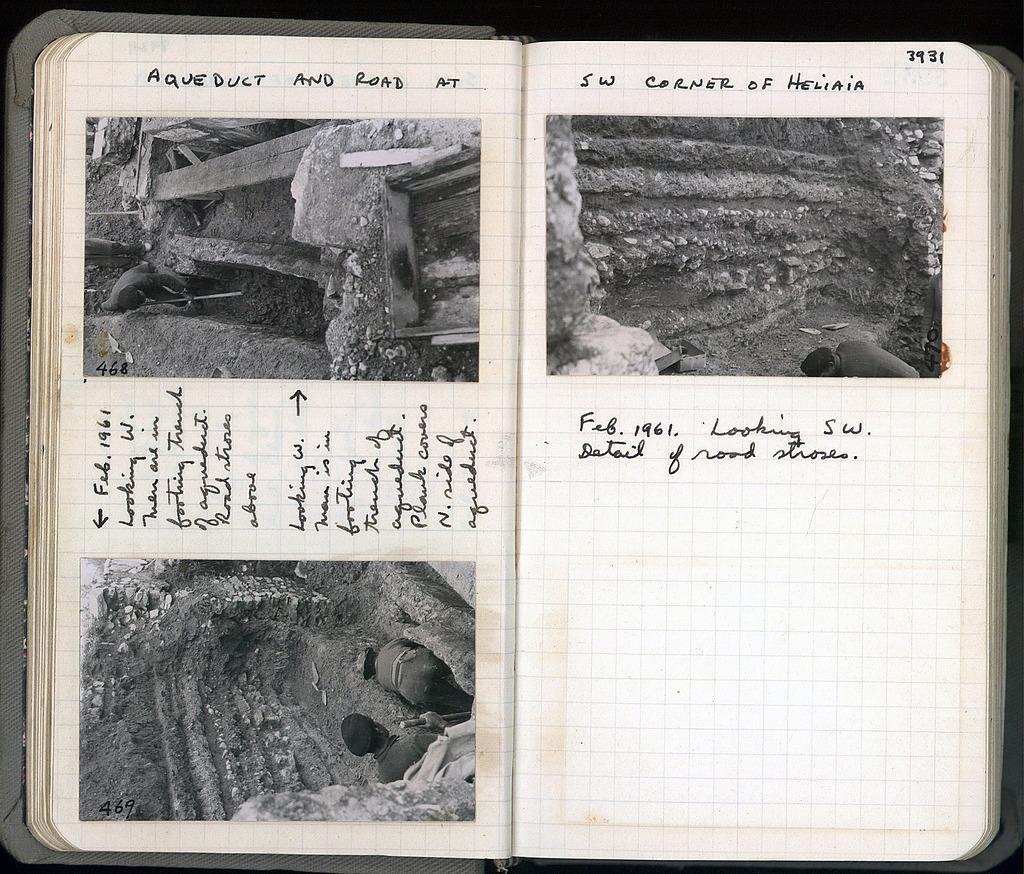 AQUEDUCT AND ROAD AT
468
← Feb. 1961
Looking W.
Men are in
footing trench
of aqueduct.
Road stroses
above
→
Looking W.
Man is in
footing
trench of
aqueduct.
Plank covers
N. side of
aqueduct.
469
3931
SW CORNER OF HELIAIA
470
Feb. 1961. Looking SW.
Detail of road stroses.